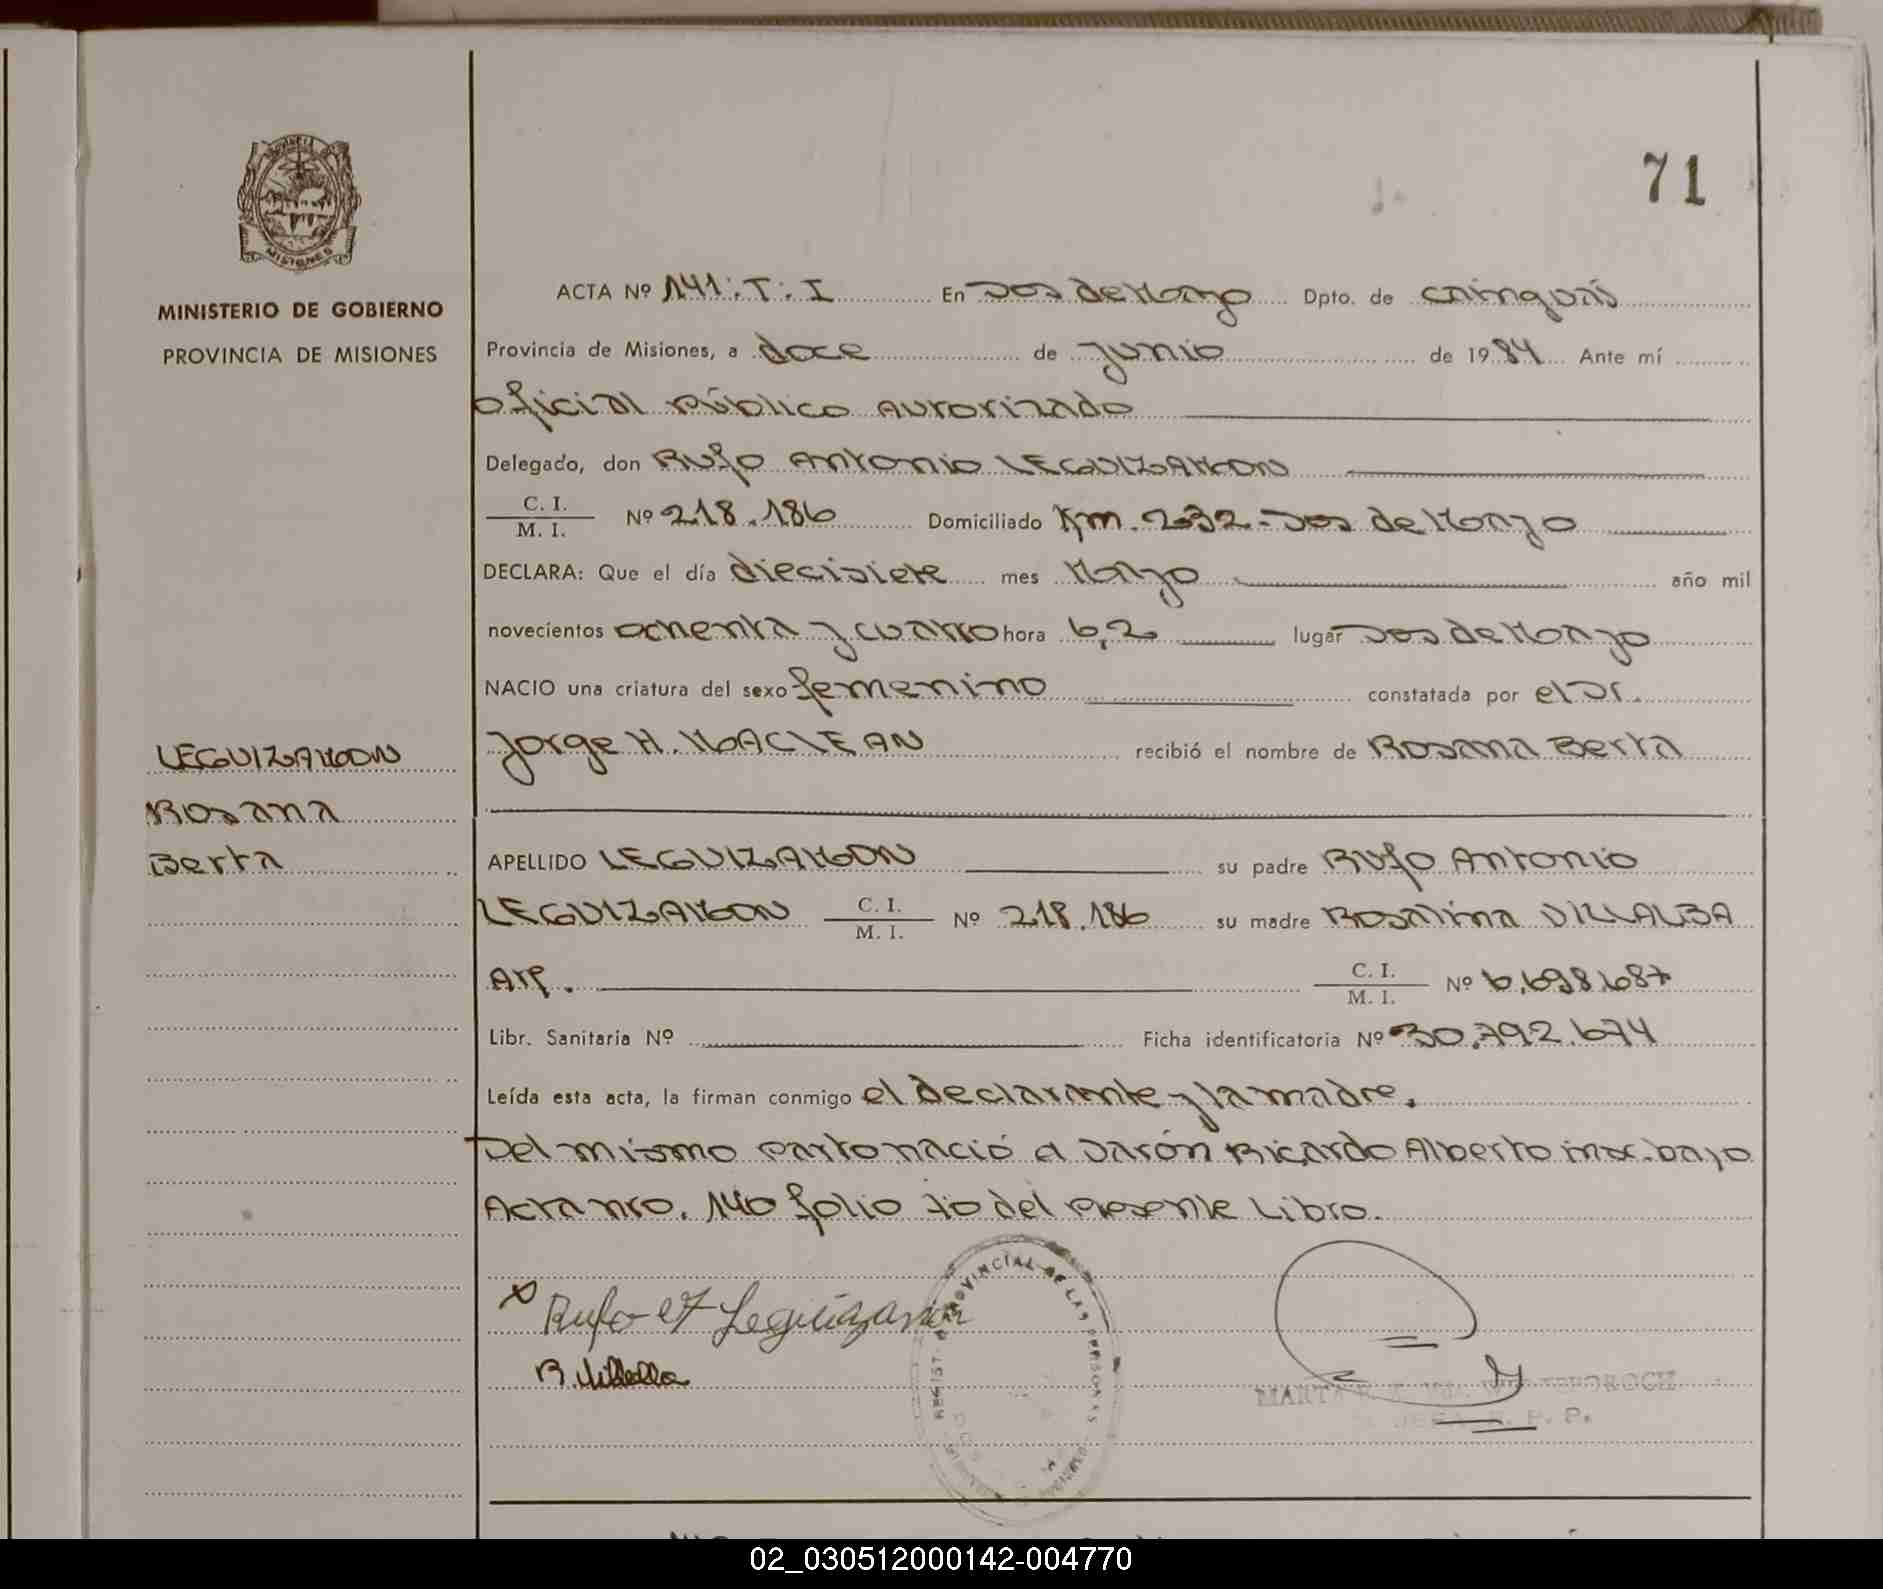 71
MINISTERIO DE GOBIERNO
PROVINCIA DE MISIONES
ACTA Nº 141:T:I En Dos de Mayo Dpto. de Cainguás
Provincia de Misiones, a doce de junio de 1984 Ante mí
oficial público autorizado
Delegado, don Rufo Antonio LEGUIZAMON
C. I. / M. I. Nº 218.186 Domiciliado Km. 232-Dos de Mayo
DECLARA: Que el día diecisiete mes Mayo año mil
novecientos ochenta y cuatro hora 6,20 lugar Dos de Mayo
NACIO una criatura del sexo femenino constatada por el Dr.
Jorge H. MACLEAN recibió el nombre de Rosana Berta
LEGUIZAMON
Rosana
Berta
APELLIDO LEGUIZAMON su padre Rufo Antonio
LEGUIZAMON C. I. / M. I. Nº 218.186 su madre Rosalina VILLALBA
Arg. C. I. / M. I. Nº 6.698.687
Libr. Sanitaria Nº Ficha identificatoria Nº 30.792.674
Leída esta acta, la firman conmigo el declarante y la madre.
Del mismo parto nació el varón Ricardo Alberto insc. bajo
Acta nro. 140 folio 70 del presente Libro.
Rufo A Leguizamon
R. Villalba
PROVINCIAL DE LAS PERSONAS
MARTA
P. P.
02_030512000142-004770